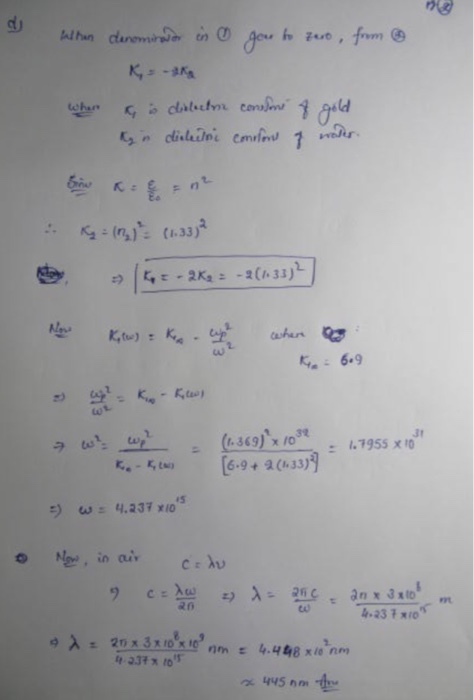 d)
When denominator in ① goes to zero, from ②
K₁ = -2K₂
Where K₁ is dielectric constant of gold
K₂ is dielectric constant of water.
Since K = ε/ε₀ = n²
∴ K₂ = (n₂)² = (1.33)²
⇒ K₁ = -2K₂ = -2(1.33)²
Now K₁(ω) = K₁∞ - ωp²/ω² where
K₁∞ = 6.9
⇒ ωp²/ω² = K₁∞ - K₁(ω)
⇒ ω² = ωp²/(K₁∞ - K₁(ω)) = (1.369)² × 10³²/[6.9 + 2(1.33)²] = 1.7955 × 10³¹
⇒ ω = 4.237 × 10¹⁵
Now, in air C = λυ
⇒ C = λω/2π ⇒ λ = 2πC/ω = 2π × 3 × 10⁸/4.237 × 10¹⁵ m
⇒ λ = 2π × 3 × 10⁸ × 10⁹/4.237 × 10¹⁵ nm = 4.448 × 10² nm
≈ 445 nm Ans